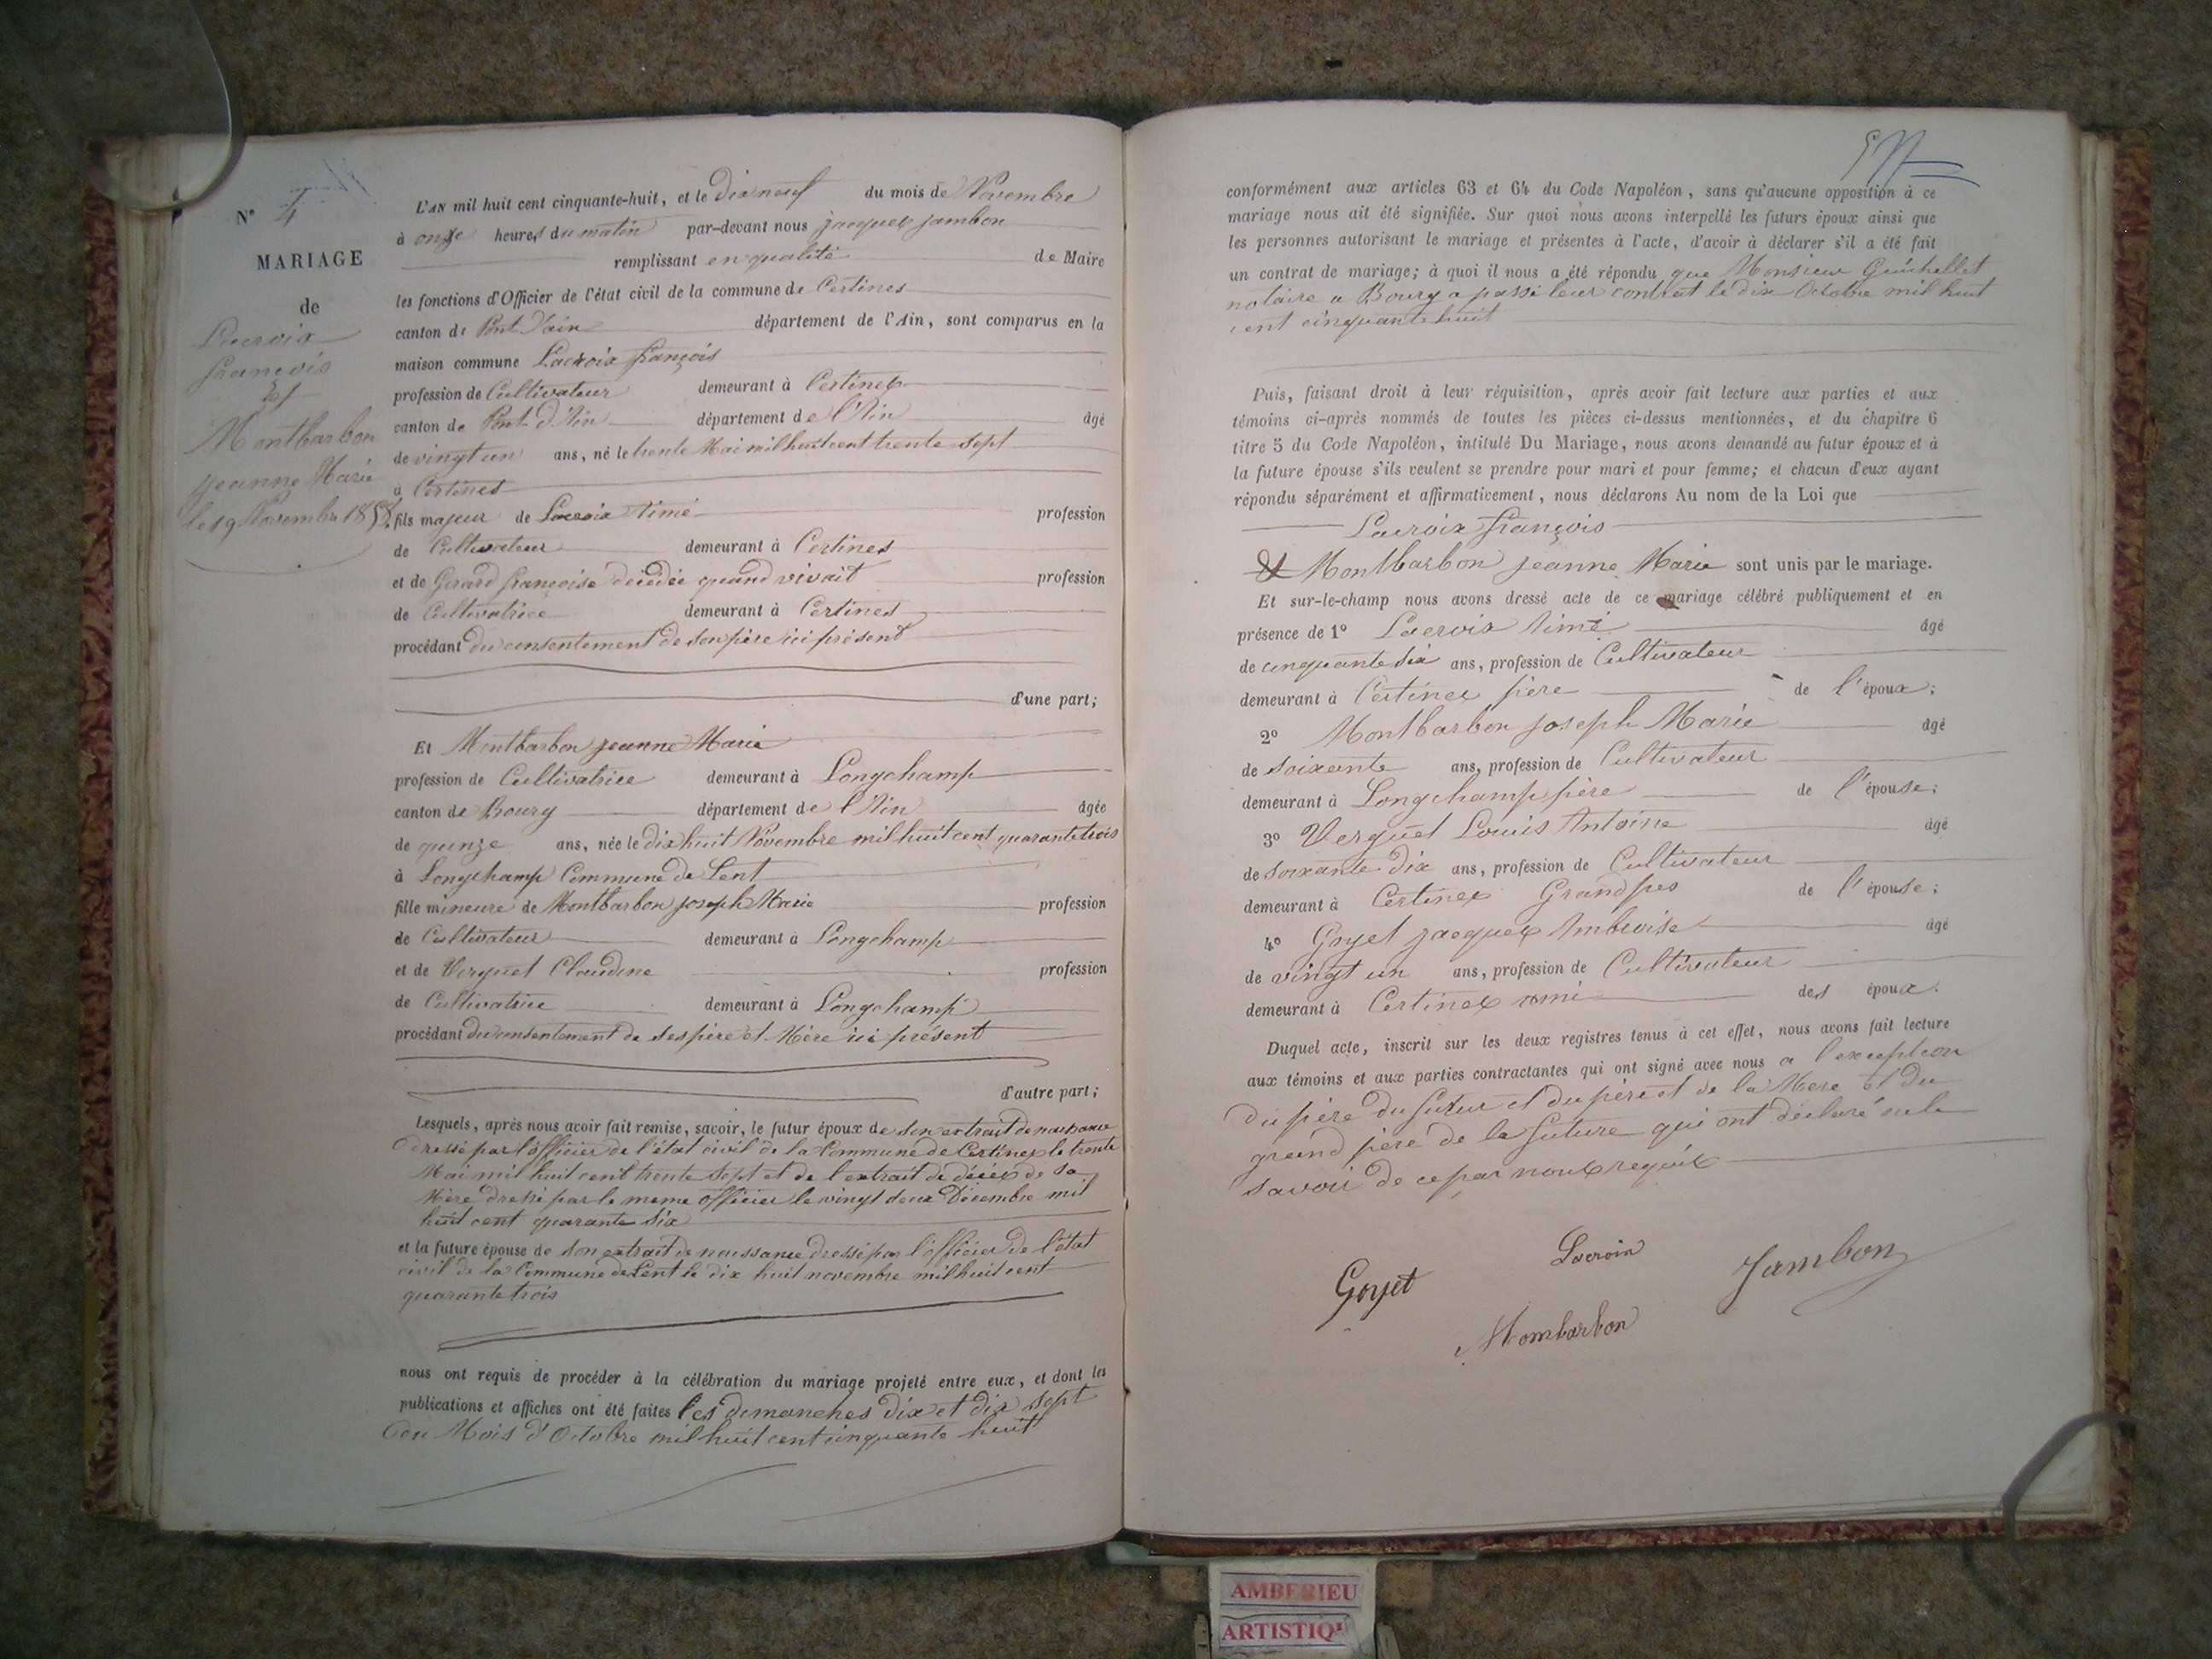 N° 4
MARIAGE
de
Lacroix
françois
Et
Montbarbon
jeanne Marie
le 19 Novembre 1858.
L'AN mil huit cent cinquante-huit, et le Dix neuf du mois de Novembre
à onze heures du matin par-devant nous jacques jambon
remplissant en qualité de Maire
les fonctions d'Officier de l'état civil de la commune de Certines
canton de Pont d'ain département de l'Ain, sont comparus en la
maison commune Lacroix françois
profession de Cultivateur demeurant à Certines
canton de Pont d'Ain département de l'Ain âgé
de vingt un ans, né le trente Mai mil huit cent trente sept
à Certines
fils majeur de Lacroix Aimé profession
de Cultivateur demeurant à Certines
et de Girard françoise décédée quand vivait profession
de Cultivatrice demeurant à Certines
procédant du consentement de son père ici présent
d'une part;
Et Montbarbon jeanne Marie
profession de Cultivatrice demeurant à Longchamp
canton de Bourg département de l'Ain âgée
de quinze ans, née le dix huit Novembre mil huit cent quarante trois
à Longchamp Commune de Lent
fille mineure de Montbarbon joseph Marie profession
de Cultivateur demeurant à Longchamp
et de Verguet Claudine profession
de Cultivatrice demeurant à Longchamp
procédant du consentement de ses père et Mère ici présent
d'autre part;
Lesquels, après nous avoir fait remise, savoir, le futur époux de son extrait de naissance
dressé par l'officier de l'état civil de la Commune de Certines le trente
Mai mil huit cent trente sept et de l'extrait de décès de sa
Mère dressé par le meme officier le vingt deux Décembre mil
huit cent quarante six
et la future épouse de son extrait de naissance dressé par l'officier de l'état
civil de la Commune de Lent le dix huit novembre mil huit cent
quarante trois
nous ont requis de procéder à la célébration du mariage projeté entre eux, et dont les
publications et affiches ont été faites les dimanches dix et dix sept
du Mois d'Octobre mil huit cent cinquante huit
conformément aux articles 63 et 64 du Code Napoléon, sans qu'aucune opposition à ce
mariage nous ait été signifiée. Sur quoi nous avons interpellé les futurs époux ainsi que
les personnes autorisant le mariage et présentes à l'acte, d'avoir à déclarer s'il a été fait
un contrat de mariage; à quoi il nous a été répondu que Monsieur Guichellet
notaire a Bourg a passé leur contrat le dix Octobre mil huit
cent cinquante huit
Puis, faisant droit à leur réquisition, après avoir fait lecture aux parties et aux
témoins ci-après nommés de toutes les pièces ci-dessus mentionnées, et du chapitre 6
titre 5 du Code Napoléon, intitulé Du Mariage, nous avons demandé au futur époux et à
la future épouse s'ils veulent se prendre pour mari et pour femme; et chacun d'eux ayant
répondu séparément et affirmativement, nous déclarons Au nom de la Loi que
Lacroix françois
Et Montbarbon jeanne Marie sont unis par le mariage.
Et sur-le-champ nous avons dressé acte de ce mariage célébré publiquement et en
présence de 1° Lacroix Aimé âgé
de cinquante six ans, profession de Cultivateur
demeurant à Certines père de l'époux;
2° Montbarbon joseph Marie âgé
de soixante ans, profession de Cultivateur
demeurant à Longchamp père de l'épouse;
3° Verguet Louis Antoine âgé
de soixante dix ans, profession de Cultivateur
demeurant à Certines Grand père de l'épouse;
4° Goyet jacques Ambroise âgé
de vingt un ans, profession de Cultivateur
demeurant à Certines ami des époux.
Duquel acte, inscrit sur les deux registres tenus à cet effet, nous avons fait lecture
aux témoins et aux parties contractantes qui ont signé avec nous a l'exception
du père du futur et du père et de la Mere et du
grand père de la future qui ont déclaré ne le
savoir de ce par nous requis
Lacroix
Jambon
Goyet
Mombarbon
AMBERIEU
ARTISTIQ